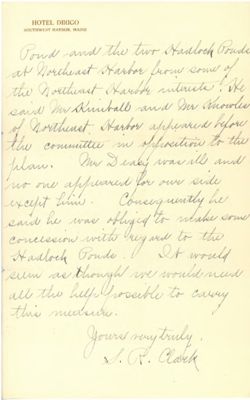 HOTEL DIRIGO
SOUTHWEST HARBOR, MAINE
Pond and the two Hadlock Ponds
at Northeast Harbor from some of
the Northeast Harbor interests. He
said Mr Kimball and Mr Knowles
of Northeast Harbor appeared before
the committee in opposition to the
plan. Mr Deasy was ill and
no one appeared for our side
except him. Consequently he
said he was obliged to make some
concession with regard to the
Hadlock Ponds. It would
seem as though we would need
all the help possible to carry
this measure.
Yours very truly,
S. R. Clark